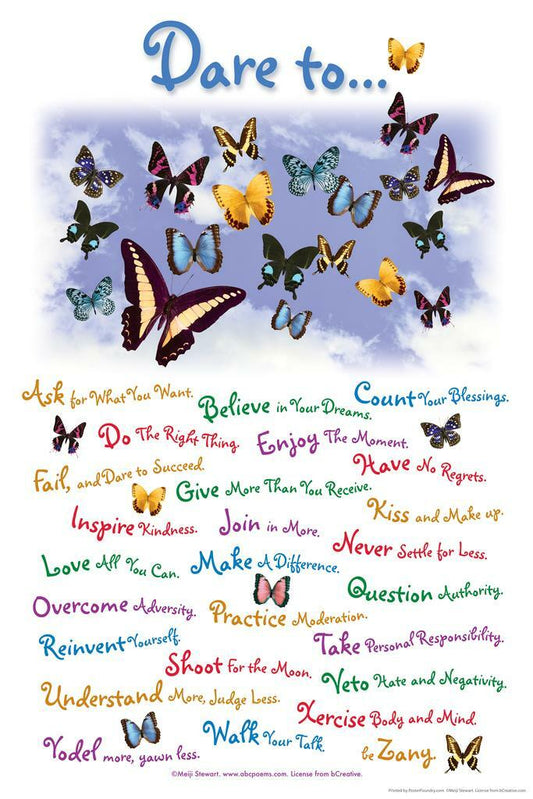 Dare to...
Ask for What You Want.
Believe in Your Dreams.
Count Your Blessings.
Do The Right Thing.
Enjoy The Moment.
Fail, and Dare to Succeed.
Give More Than You Receive.
Have No Regrets.
Inspire Kindness.
Join in More.
Kiss and Make up.
Love All You Can.
Make A Difference.
Never Settle for Less.
Overcome Adversity.
Practice Moderation.
Question Authority.
Reinvent Yourself.
Shoot For the Moon.
Take Personal Responsibility.
Understand More, Judge Less.
Veto Hate and Negativity.
Walk Your Talk.
Xercise Body and Mind.
Yodel more, yawn less.
be Zany.
©Meiji Stewart, www.abcpoems.com. License from bCreative.
Printed by PosterFoundry.com. ©Meiji Stewart, www.abcpoems.com. License from bCreative.com